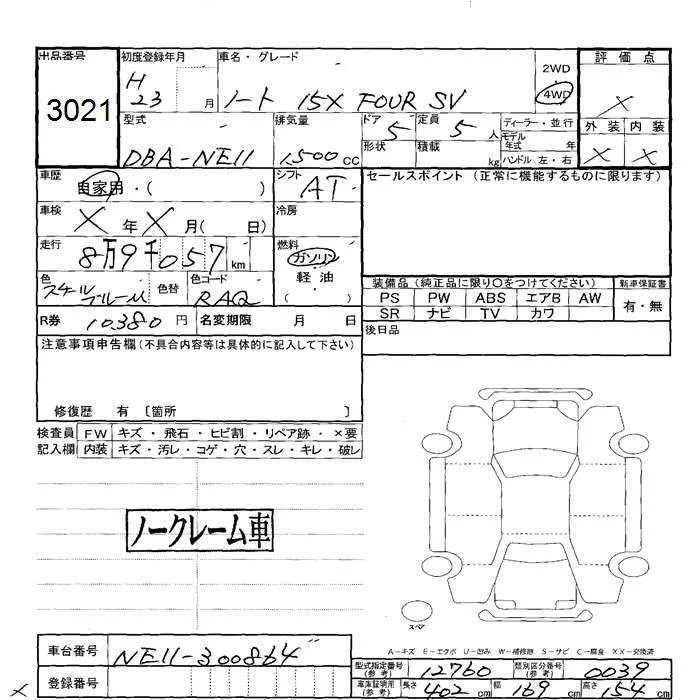 出品番号 初度登録年月 車名・グレード 2WD 評価点
3021 H23 月 ノート 15X FOUR SV 4WD X
型式 排気量 ドア 定員 ディーラー・並行 外装 内装
DBA-NE11 1,500 cc 5 5 人 モデル年式 年 X X
形状 積載 kg ハンドル 左・右
車歴 自家用・( ) シフト AT セールスポイント (正常に機能するものに限ります)
車検 X 年 X 月( 日) 冷房
走行 8万9千057 km 燃料 ガソリン 軽油 ( )
色 スチールブルーM 色替 色コード RAQ 装備品 (純正品に限り○をつけてください) 新車保証書
PS PW ABS エアB AW 有・無
SR ナビ TV カワ
R券 10,380 円 名変期限 月 日 後日品
注意事項申告欄 (不具合内容等は具体的に記入して下さい)
修復歴 有 〔箇所 〕
検査員 FW キズ・飛石・ヒビ割・リペア跡・×要
記入欄 内装 キズ・汚レ・コゲ・穴・スレ・キレ・破レ
ノークレーム車
スペア
A-キズ E-エクボ U-凹み W-補修跡 S-サビ C-腐食 XX-交換済
車台番号 NE11-300864 型式指定番号 (参考) 12760 類別区分番号 (参考) 0039
X 登録番号 車庫証明用 (参考) 長さ 402 cm 幅 169 cm 高さ 154 cm